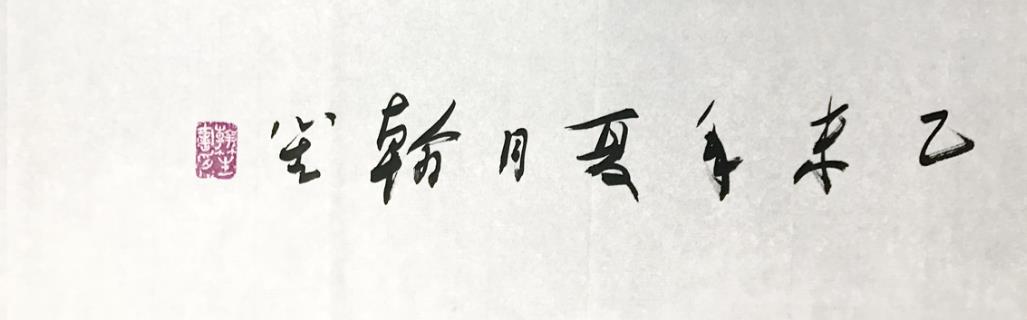 乙未年夏月翰笙